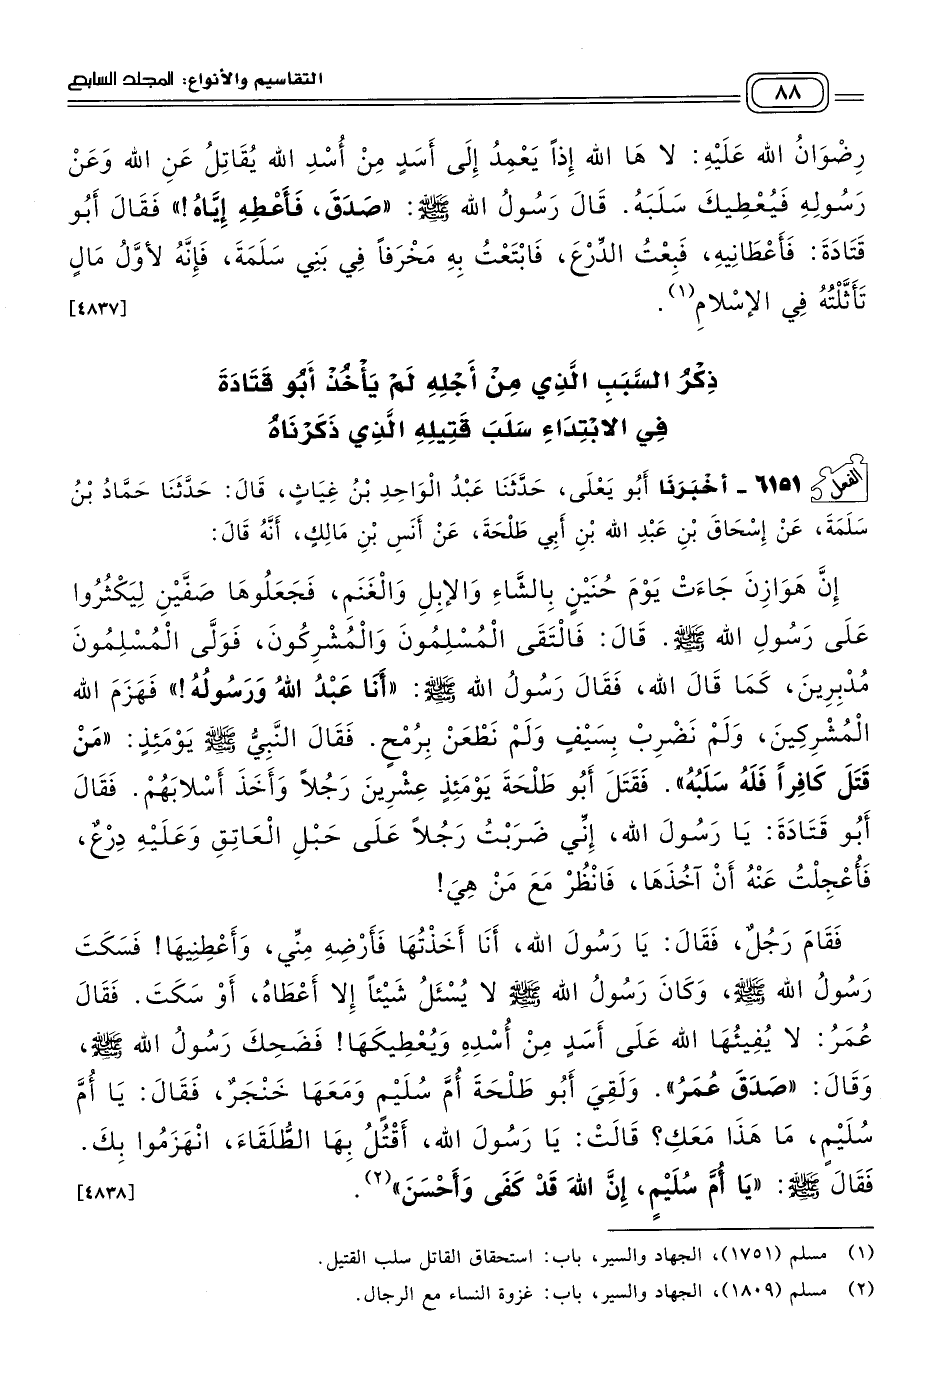 ٨٨
التقاسيم والأنواع: المجلد السابع
رِضْوَانُ الله عَلَيْهِ: لا هَا الله إِذاً يَعْمِدُ إِلَى أَسَدٍ مِنْ أُسْدِ الله يُقَاتِلُ عَنِ الله وَعَنْ
رَسُولِهِ فَيُعْطِيكَ سَلَبَهُ. قَالَ رَسُولُ الله ﷺ: «صَدَقَ، فَأَعْطِهِ إِيَّاهُ!» فَقَالَ أَبُو
قَتَادَةَ: فَأَعْطَانِيهِ، فَبِعْتُ الدِّرْعَ، فَابْتَعْتُ بِهِ مَخْرَفاً فِي بَنِي سَلَمَةَ، فَإِنَّهُ لأوَّلُ مَالٍ
تَأَثَّلْتُهُ فِي الإسْلامِ(١). [٤٨٣٧]
ذِكْرُ السَّبَبِ الَّذِي مِنْ أَجْلِهِ لَمْ يَأْخُذْ أَبُو قَتَادَةَ
فِي الابْتِدَاءِ سَلَبَ قَتِيلِهِ الَّذِي ذَكَرْنَاهُ
الفعل ٦١٥١ - أخْبَرَنَا أَبُو يَعْلَى، حَدَّثَنَا عَبْدُ الْوَاحِدِ بْنُ غِيَاثٍ، قَالَ: حَدَّثَنَا حَمَّادُ بْنُ
سَلَمَةَ، عَنْ إِسْحَاقَ بْنِ عَبْدِ الله بْنِ أَبِي طَلْحَةَ، عَنْ أَنَسِ بْنِ مَالِكٍ، أَنَّهُ قَالَ:
إِنَّ هَوَازِنَ جَاءَتْ يَوْمَ حُنَيْنٍ بِالشَّاءِ وَالإبِلِ وَالْغَنَمِ، فَجَعَلُوهَا صَفَّيْنِ لِيَكْثُرُوا
عَلَى رَسُولِ الله ﷺ. قَالَ: فَالْتَقَى الْمُسْلِمُونَ وَالْمُشْرِكُونَ، فَوَلَّى الْمُسْلِمُونَ
مُدْبِرِينَ، كَمَا قَالَ الله، فَقَالَ رَسُولُ الله ﷺ: «أَنَا عَبْدُ اللهُ وَرَسُولُهُ!» فَهَزَمَ الله
الْمُشْرِكِينَ، وَلَمْ نَضْرِبْ بِسَيْفٍ وَلَمْ نَطْعَنْ بِرُمْحٍ. فَقَالَ النَّبِيُّ ﷺ يَوْمَئِذٍ: «مَنْ
قَتَلَ كَافِراً فَلَهُ سَلَبُهُ». فَقَتَلَ أَبُو طَلْحَةَ يَوْمَئِذٍ عِشْرِينَ رَجُلاً وَأَخَذَ أَسْلابَهُمْ. فَقَالَ
أَبُو قَتَادَةَ: يَا رَسُولَ الله، إِنِّي ضَرَبْتُ رَجُلاً عَلَى حَبْلِ الْعَاتِقِ وَعَلَيْهِ دِرْعٌ،
فَأُعْجِلْتُ عَنْهُ أَنْ آخُذَهَا، فَانْظُرْ مَعَ مَنْ هِيَ!
فَقَامَ رَجُلٌ، فَقَالَ: يَا رَسُولَ الله، أَنَا أَخَذْتُهَا فَأَرْضِهِ مِنِّي، وَأَعْطِنِيهَا! فَسَكَتَ
رَسُولُ الله ﷺ، وَكَانَ رَسُولُ الله ﷺ لا يُسْئَلُ شَيْئاً إِلا أَعْطَاهُ، أَوْ سَكَتَ. فَقَالَ
عُمَرُ: لا يُفِيئُهَا الله عَلَى أَسَدٍ مِنْ أُسْدِهِ وَيُعْطِيكَهَا! فَضَحِكَ رَسُولُ الله ﷺ،
وَقَالَ: «صَدَقَ عُمَرُ». وَلَقِيَ أَبُو طَلْحَةَ أُمَّ سُلَيْمٍ وَمَعَهَا خَنْجَرٌ، فَقَالَ: يَا أُمَّ
سُلَيْمٍ، مَا هَذَا مَعَكِ؟ قَالَتْ: يَا رَسُولَ الله، أَقْتُلُ بِهَا الطُّلَقَاءَ، انْهَزَمُوا بِكَ.
فَقَالَ ﷺ: «يَا أُمَّ سُلَيْمٍ، إِنَّ اللهَ قَدْ كَفَى وَأَحْسَنَ»(٢). [٤٨٣٨]
(١) مسلم (١٧٥١)، الجهاد والسير، باب: استحقاق القاتل سلب القتيل.
(٢) مسلم (١٨٠٩)، الجهاد والسير، باب: غزوة النساء مع الرجال.